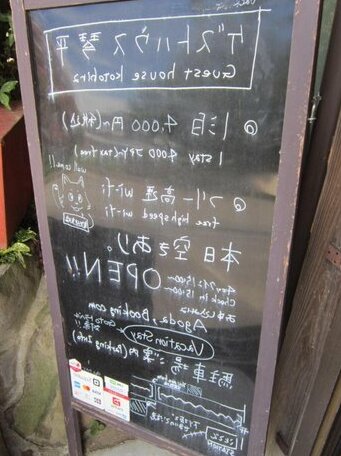 ゲストハウス 琴平
Guest house kotohira
@ 1泊 4,000円〜(税込)
1 stay 4000 JPY〜(tax free)
@ フリー高速 Wi-Fi
free high speed wi-fi
Wel come!!
本日空きあり。
OPEN!!
チェックイン15:00〜
Check in 15:00〜
Agoda, Booking.com
Vacation Stay
駐車場ご案内(Parking Info)
ここ
STATION